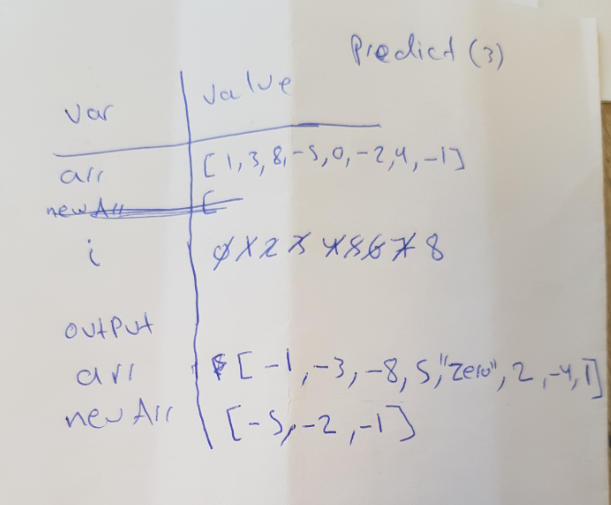 Predict (3)
var value
arr [1,3,8,-5,0,-2,4,-1]
newArr [
i 0 1 2 3 4 5 6 7 8
output
arr [-1,-3,-8,5,"Zero",2,-4,1]
newArr [-5,-2,-1]